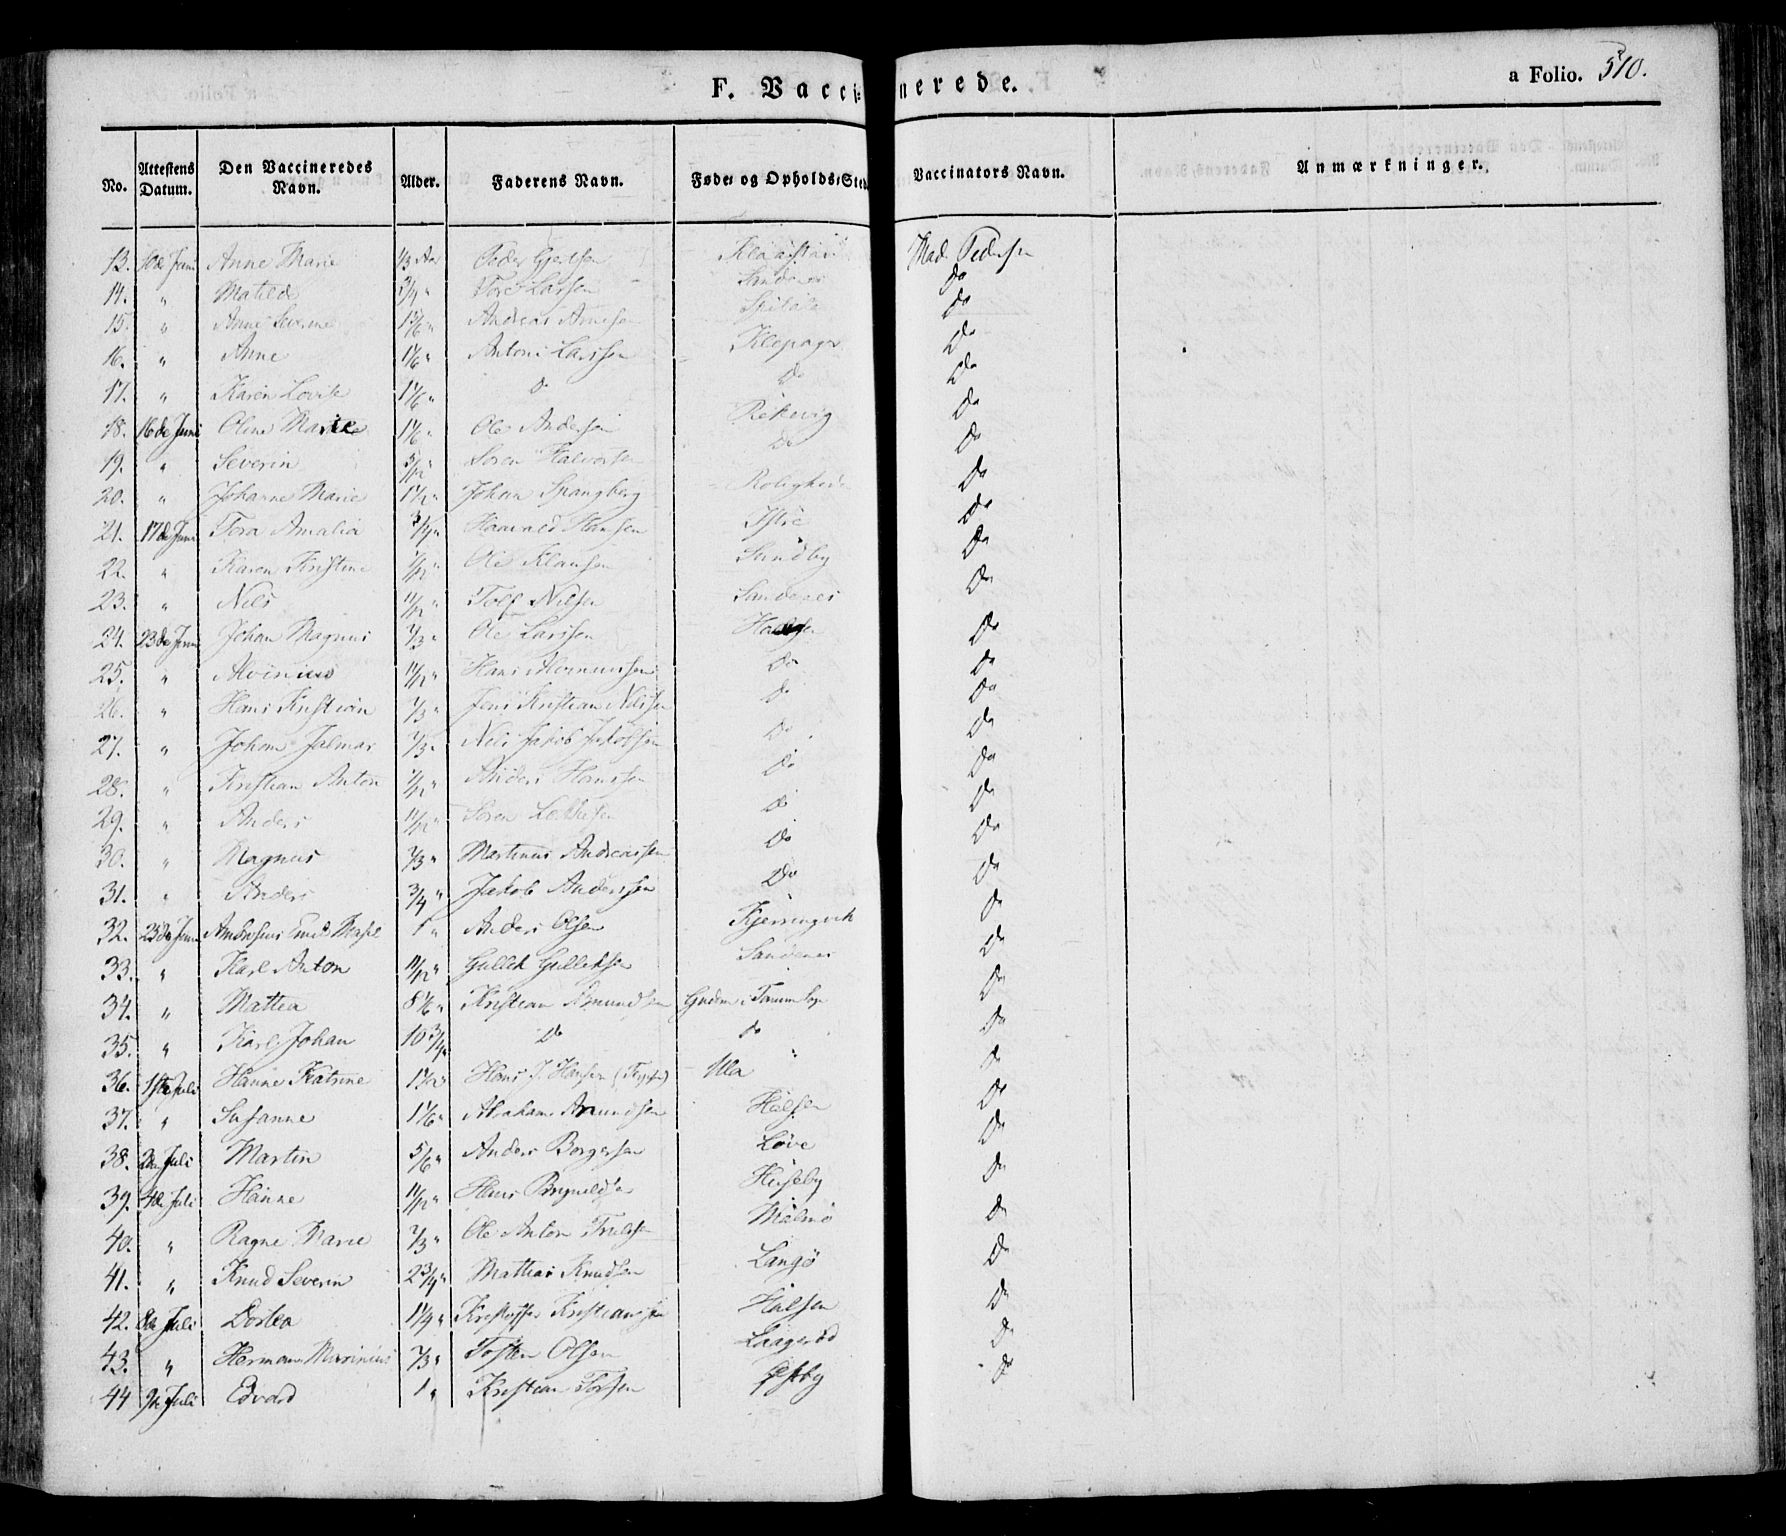 F. Vacci-nerede.
a Folio. 510.
No. Attestens Datum. Den Vaccineredes Navn. Alder. Faderens Navn. Føde- og Opholds-Sted Vaccinators Navn. Anmærkninger.
13. 10de Juni Anne Marie 1/3 Aar Peder Gjertsen Mad. Pedersen
14. " Matilde 3/4 " Tore Larsen Sandenes Do
15. " Anne Severine 1 5/6 " Andreas Arnesen Do
16. " Anne 1 1/6 " Anton Larssen Klepager Do
17. " Karen Lovise 1 1/6 " Do Do Do
18. 16de Juni Oline Marie 1 1/6 " Ole Andersen Rekevig Do
19. " Severin 5/12 " Soren Halvorsen Do Do
20. " Johanne Marie 1 1/2 " Johan Spangberg Roligheden Do
21. 17de Juni Tora Amalia 3/4 " Haavald Hansen Istre Do
22. " Karen Kristine 1/12 " Ole Klausen Sundby Do
23. " Nils 11/12 " Tolf Nilsen Sandenes Do
24. 23de Juni Johan Magnus 2/3 " Ole Larssen Halsen Do
25. " Alvinius 11/12 " Hans Do Do
26. " Hans Kristian 2/3 " Jens Kristian Nilssen Do Do
27. " Johan Jalmar 2/3 " Nils Jakob Jakobsen Do Do
28. " Kristian Anton 11/12 " Anders Hanssen Do Do
29. " Anders 11/12 " Soren Do Do
30. " Magnus 2/3 " Martinus Andreassen Do Do
31. " Anders 3/4 " Jakob Anderssen Do Do
32. 25de Juni Ambrosius Emil 1 " Anders Olsen Kjerringvik Do
33. " Karl Anton 11/12 " Gullik Gulliksen Sandenes Do
34. " Mattea 8 1/6 " Kristian Amundsen i Tanum Sogn Do
35. " Karl Johan 10 3/4 " Do Do Do
36. 1ste Juli Hanne Katrine 1 1/12 " Hans J. Hansen Ula Do
37. " Susanne 1 1/6 " Abraham Amundsen Halsen Do
38. 2den Juli Martin 5/6 " Anders Borgersen Løve Do
39. 4de Juli Hanne 11/12 " Hans Brynildsen Huseby Do
40. " Ragne Marie 2/3 " Ole Anton Trulsen Malmø Do
41. " Knud Severin 2 3/4 " Mattias Knudsen Langø Do
42. 8de Juli Dortea 1 1/4 " Kristoffer Kristiansen Halsen Do
43. " Herman Marinius 2/3 " Tosten Olsen Laagerød Do
44 9de Juli Edvard 1 " Kristian Torsen Østby Do